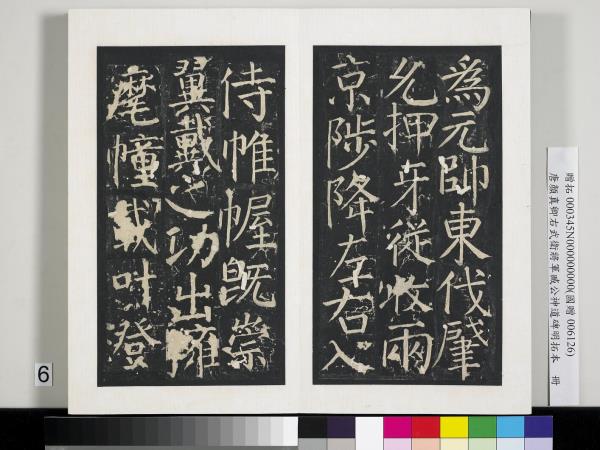 為元帥東伐肈
允押牙從收兩
京陟降左右入
侍帷幄既崇
翼戴之功出擁
麾幢載叶澄
贈拓 000345N000000000(國贈 006126)
唐顏真卿右武衛將軍臧公神道碑明拓本 冊
6